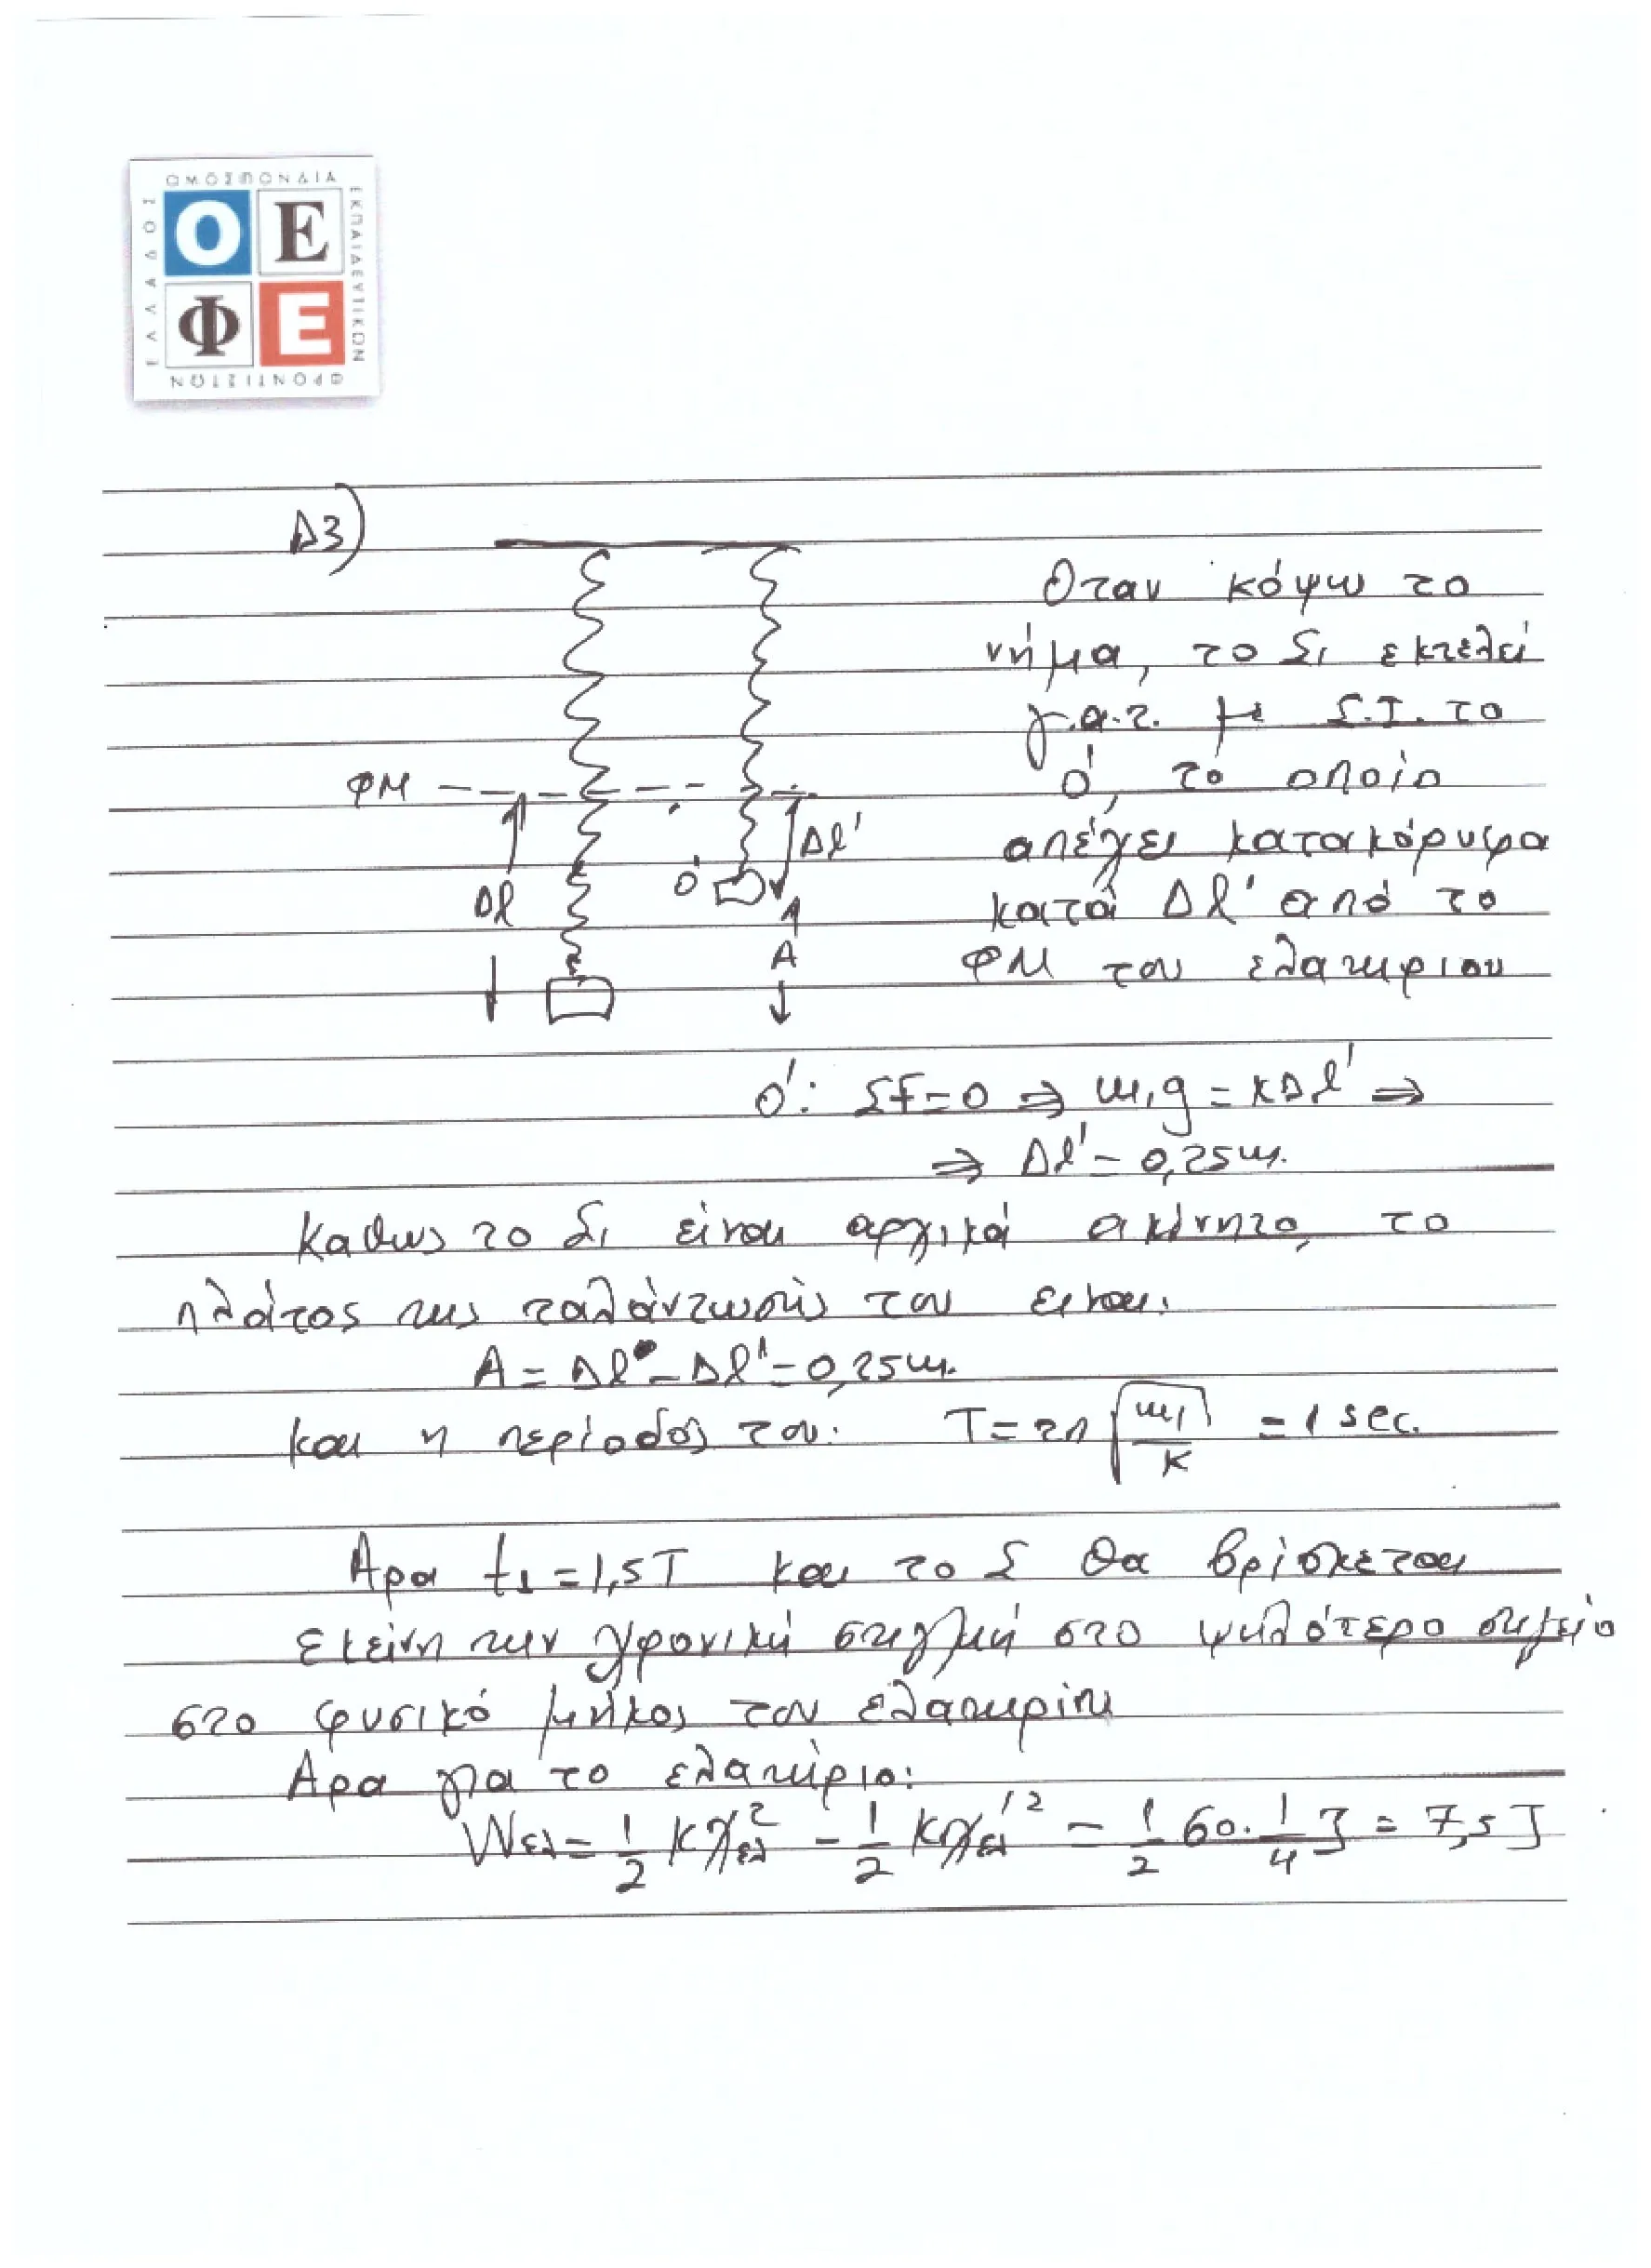 ΟΜΟΣΠΟΝΔΙΑ
ΕΚΠΑΙΔΕΥΤΙΚΩΝ
ΦΡΟΝΤΙΣΤΩΝ
ΕΛΛΑΔΟΣ
Ο Ε
Φ Ε
Δ3)
Οταν κόψω το
νήμα, το Σ₁ εκτελεί
γ.α.τ. με Θ.Ι. το
Ο', το οποίο
απέχει κατακόρυφα
κατά Δl' από το
ΦΜ του ελατηριου
ΦΜ
Δl
Ο'
Δl'
A
Ο': ΣF=0 ⇒ m₁g = kΔl' ⇒
⇒ Δl' = 0,25m.
Καθως το Σ₁ είναι αρχικά ακίνητο, το
πλάτος της ταλάντωσής του ειναι.
A = Δl - Δl' = 0,25m.
και η περίοδός του: T = 2π√(m₁/k) = 1 sec.
Αρα t₁ = 1,5T και το Σ θα βρίσκεται
εκείνη την χρονική στιγμή στο ψηλότερο σημείο
στο φυσικό μήκος του ελατηρίου
Αρα για το ελατήριο:
Wελ = 1/2 kxελ² - 1/2 kxελ'² = 1/2 60 · 1/4 J = 7,5 J